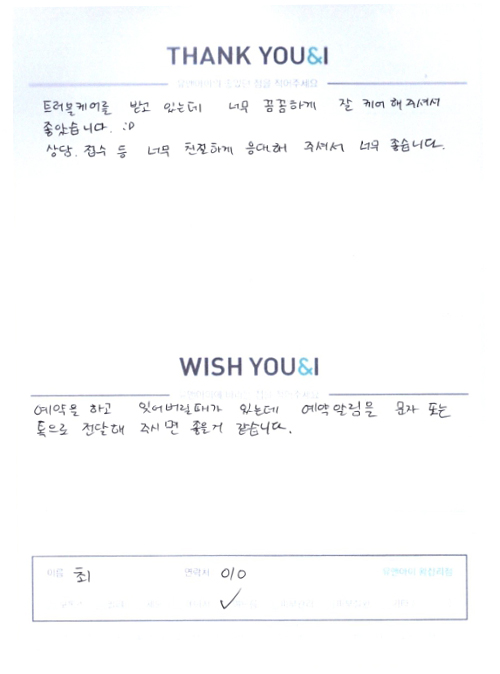 THANK YOU&I
트러블케어를 받고 있는데 너무 꼼꼼하게 잘 케어 해주셔서
좋았습니다. :D
상담, 접수 등 너무 친절하게 응대해 주셔서 너무 좋습니다.
WISH YOU&I
예약을 하고 잊어버릴때가 있는데 예약알림을 문자 또는
톡으로 전달해 주시면 좋을거 같습니다.
이름 최 연락처 010 유앤아이